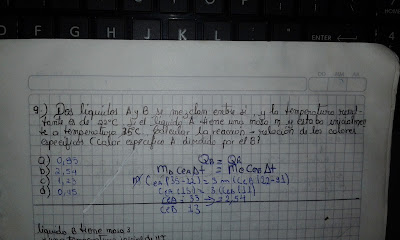 9) Dos liquidos A y B se mezclan entre si, y la temperatura resul-
tante es de 22°C. Si el liquido A tiene una masa m y estaba inicialmen-
te a temperatura 35°C. Calcular la reaccion - relación de los calores
especificos (Calor especifico A dividido por el B)
a) 0,85
b) 2,54
c)
d) 0,45
QA = QB
mA CeA Δt = mB CeB Δt
m (CeA (35-22) = 3 m (CeB (22-11)
CeA (13) = 3 (CeB (11)
CeA = 33 → 2,54
CeB 13
liquido B tiene masa 3
ENTER